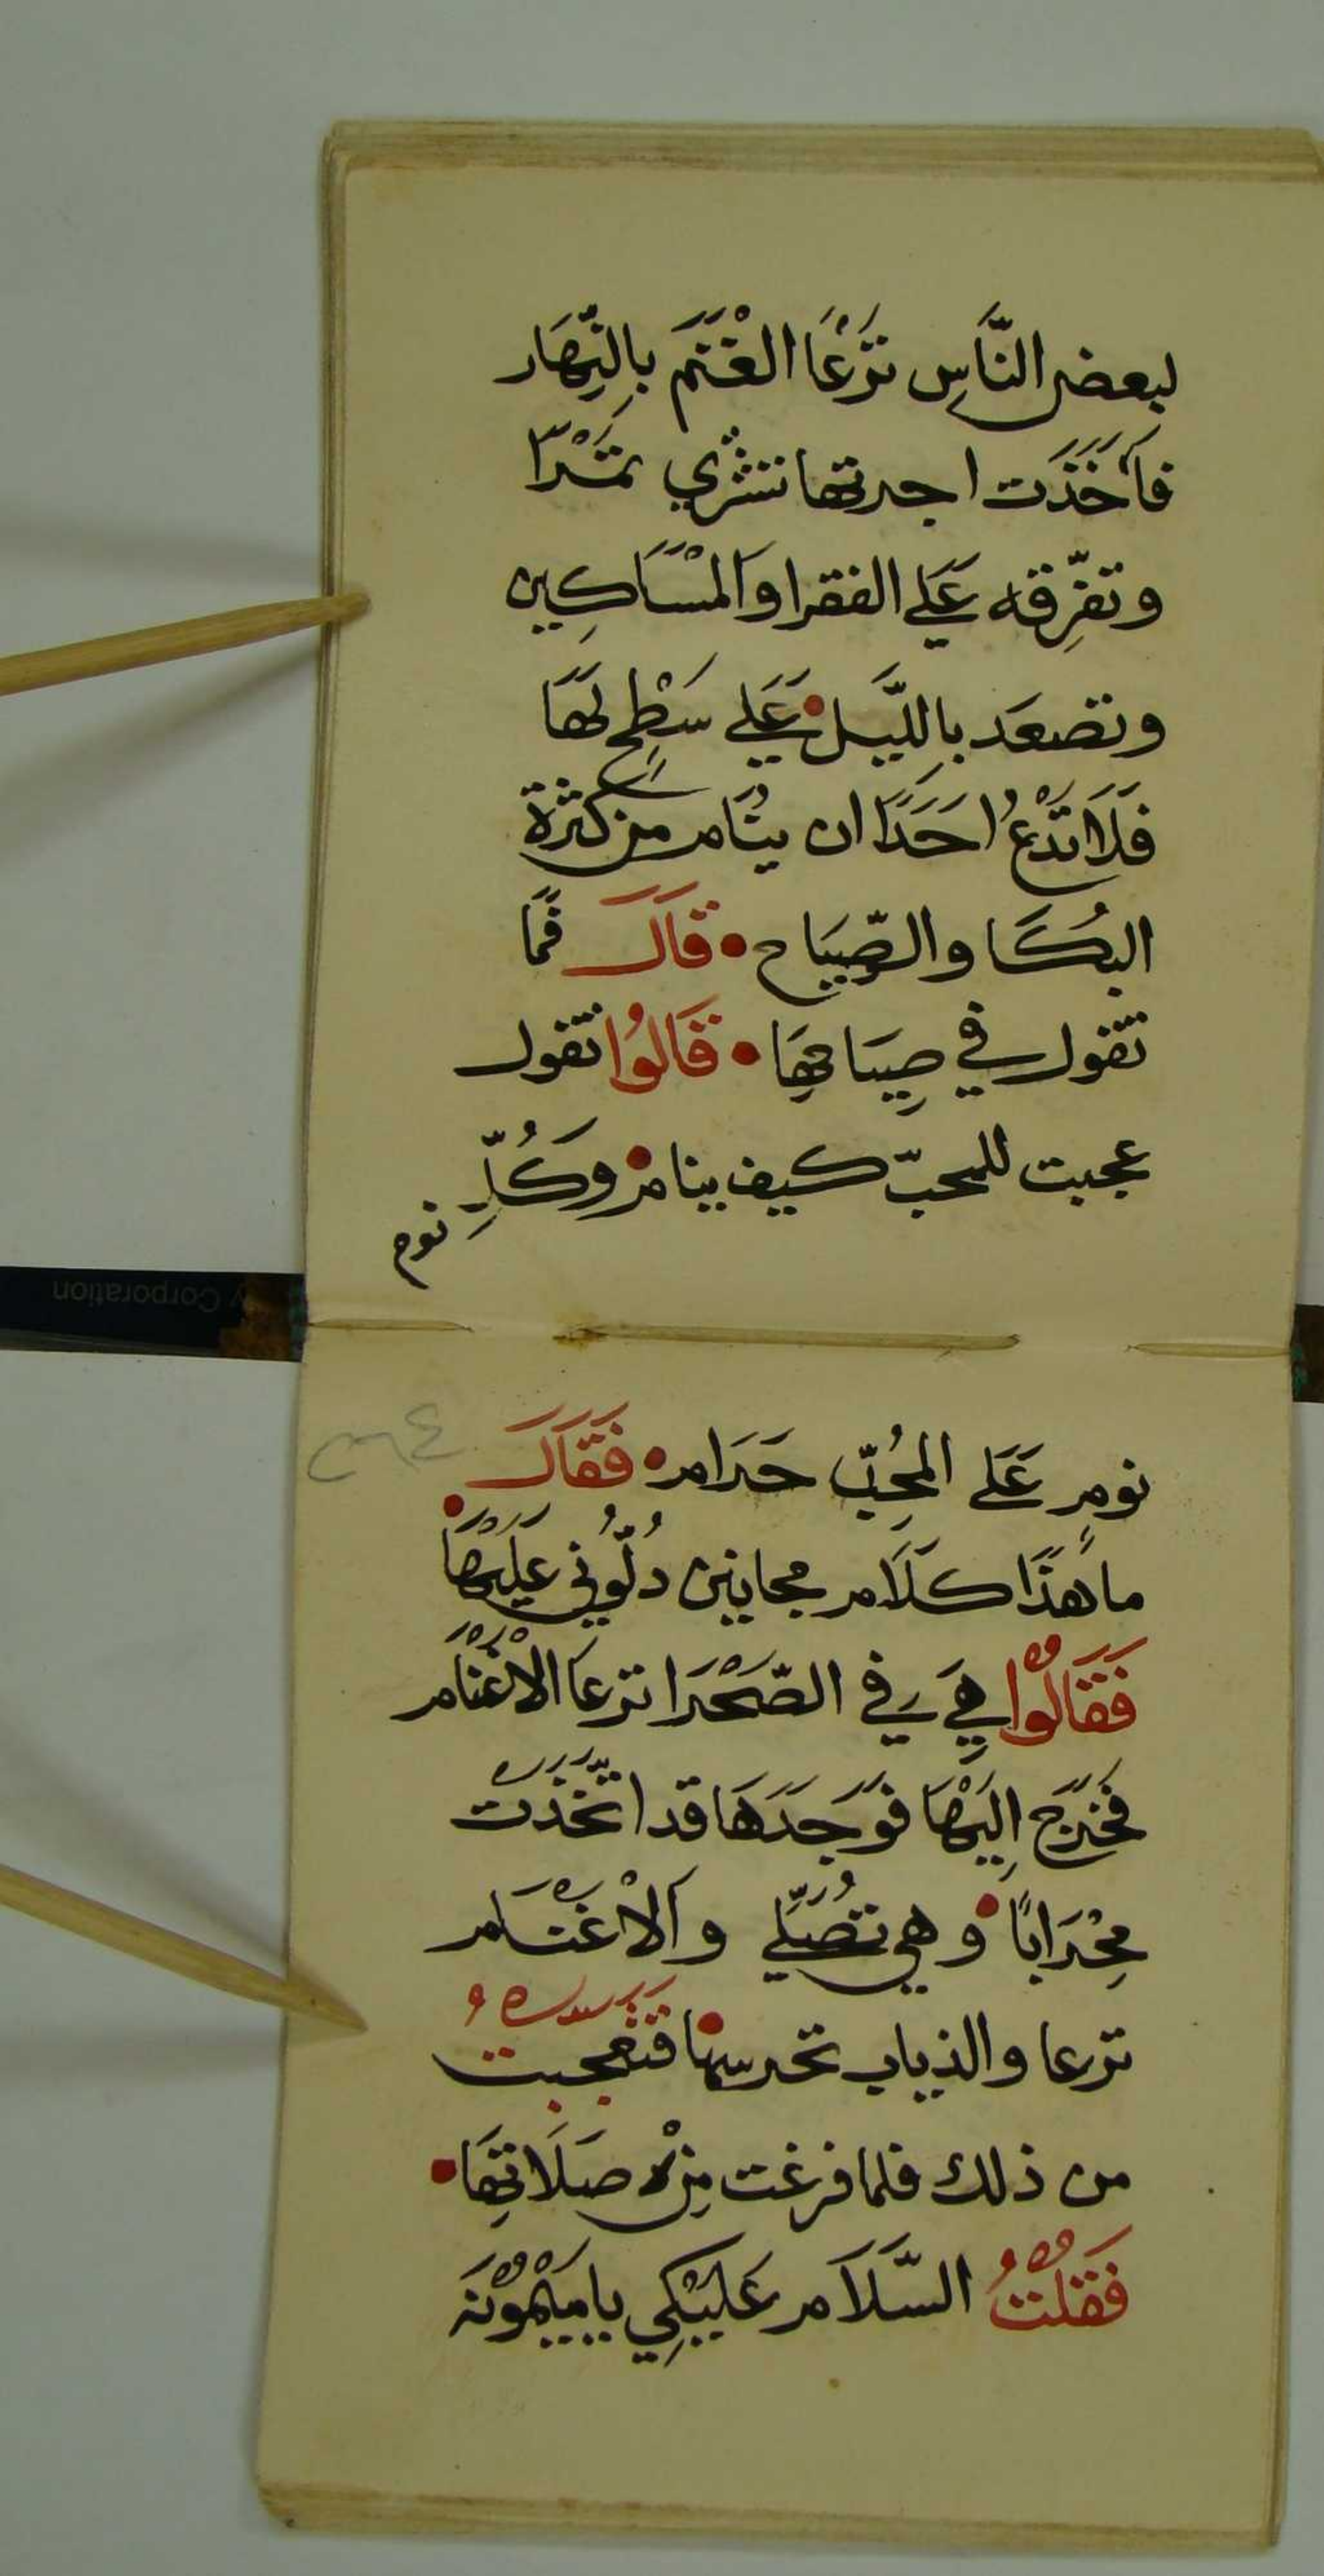 لبعض النَّاسِ تَرْعَا الغْنَم بِالنِّهَار
فأخَذَت اجرتها تشتري تمْرًا
وتفرِّقه عَلي الفقرا وَالمسَاكِين
وتصعَد بِاللَّيل عَلي سَطْح لهَا
فَلَا تَدْعُ احَدًا ان ينَام من كثرة
البُكَا والصِّيَاح • قَالَ فمَا
تقول في صِيَاحِهَا • قَالوُا تقول
عجبت للمحبّ كيف ينام وَكُلِّ
نوم
نومٍ عَلَى المحُبِّ حَرَام • فَقَالَ
ما هَذَا كَلَام مجانين دُلُّوني عَليْهَا
فَقَالُوْا هِيَ في الصَّحْرَا ترعَا الْاغْنَام
فَخَرَج اِليْهَا فوَجَدَهَا قد اتَّخَذَتْ
مِحْرَابًا وهي تُصَلّي وَالْاغْنَام
ترعا والذياب تحرسها فتعجبت
من ذلك فلما فرغت مِنْ صَلَاتِهَا •
فَقُلْتُ السَّلَام عَليْكِي يا مَيْمُوْنَه